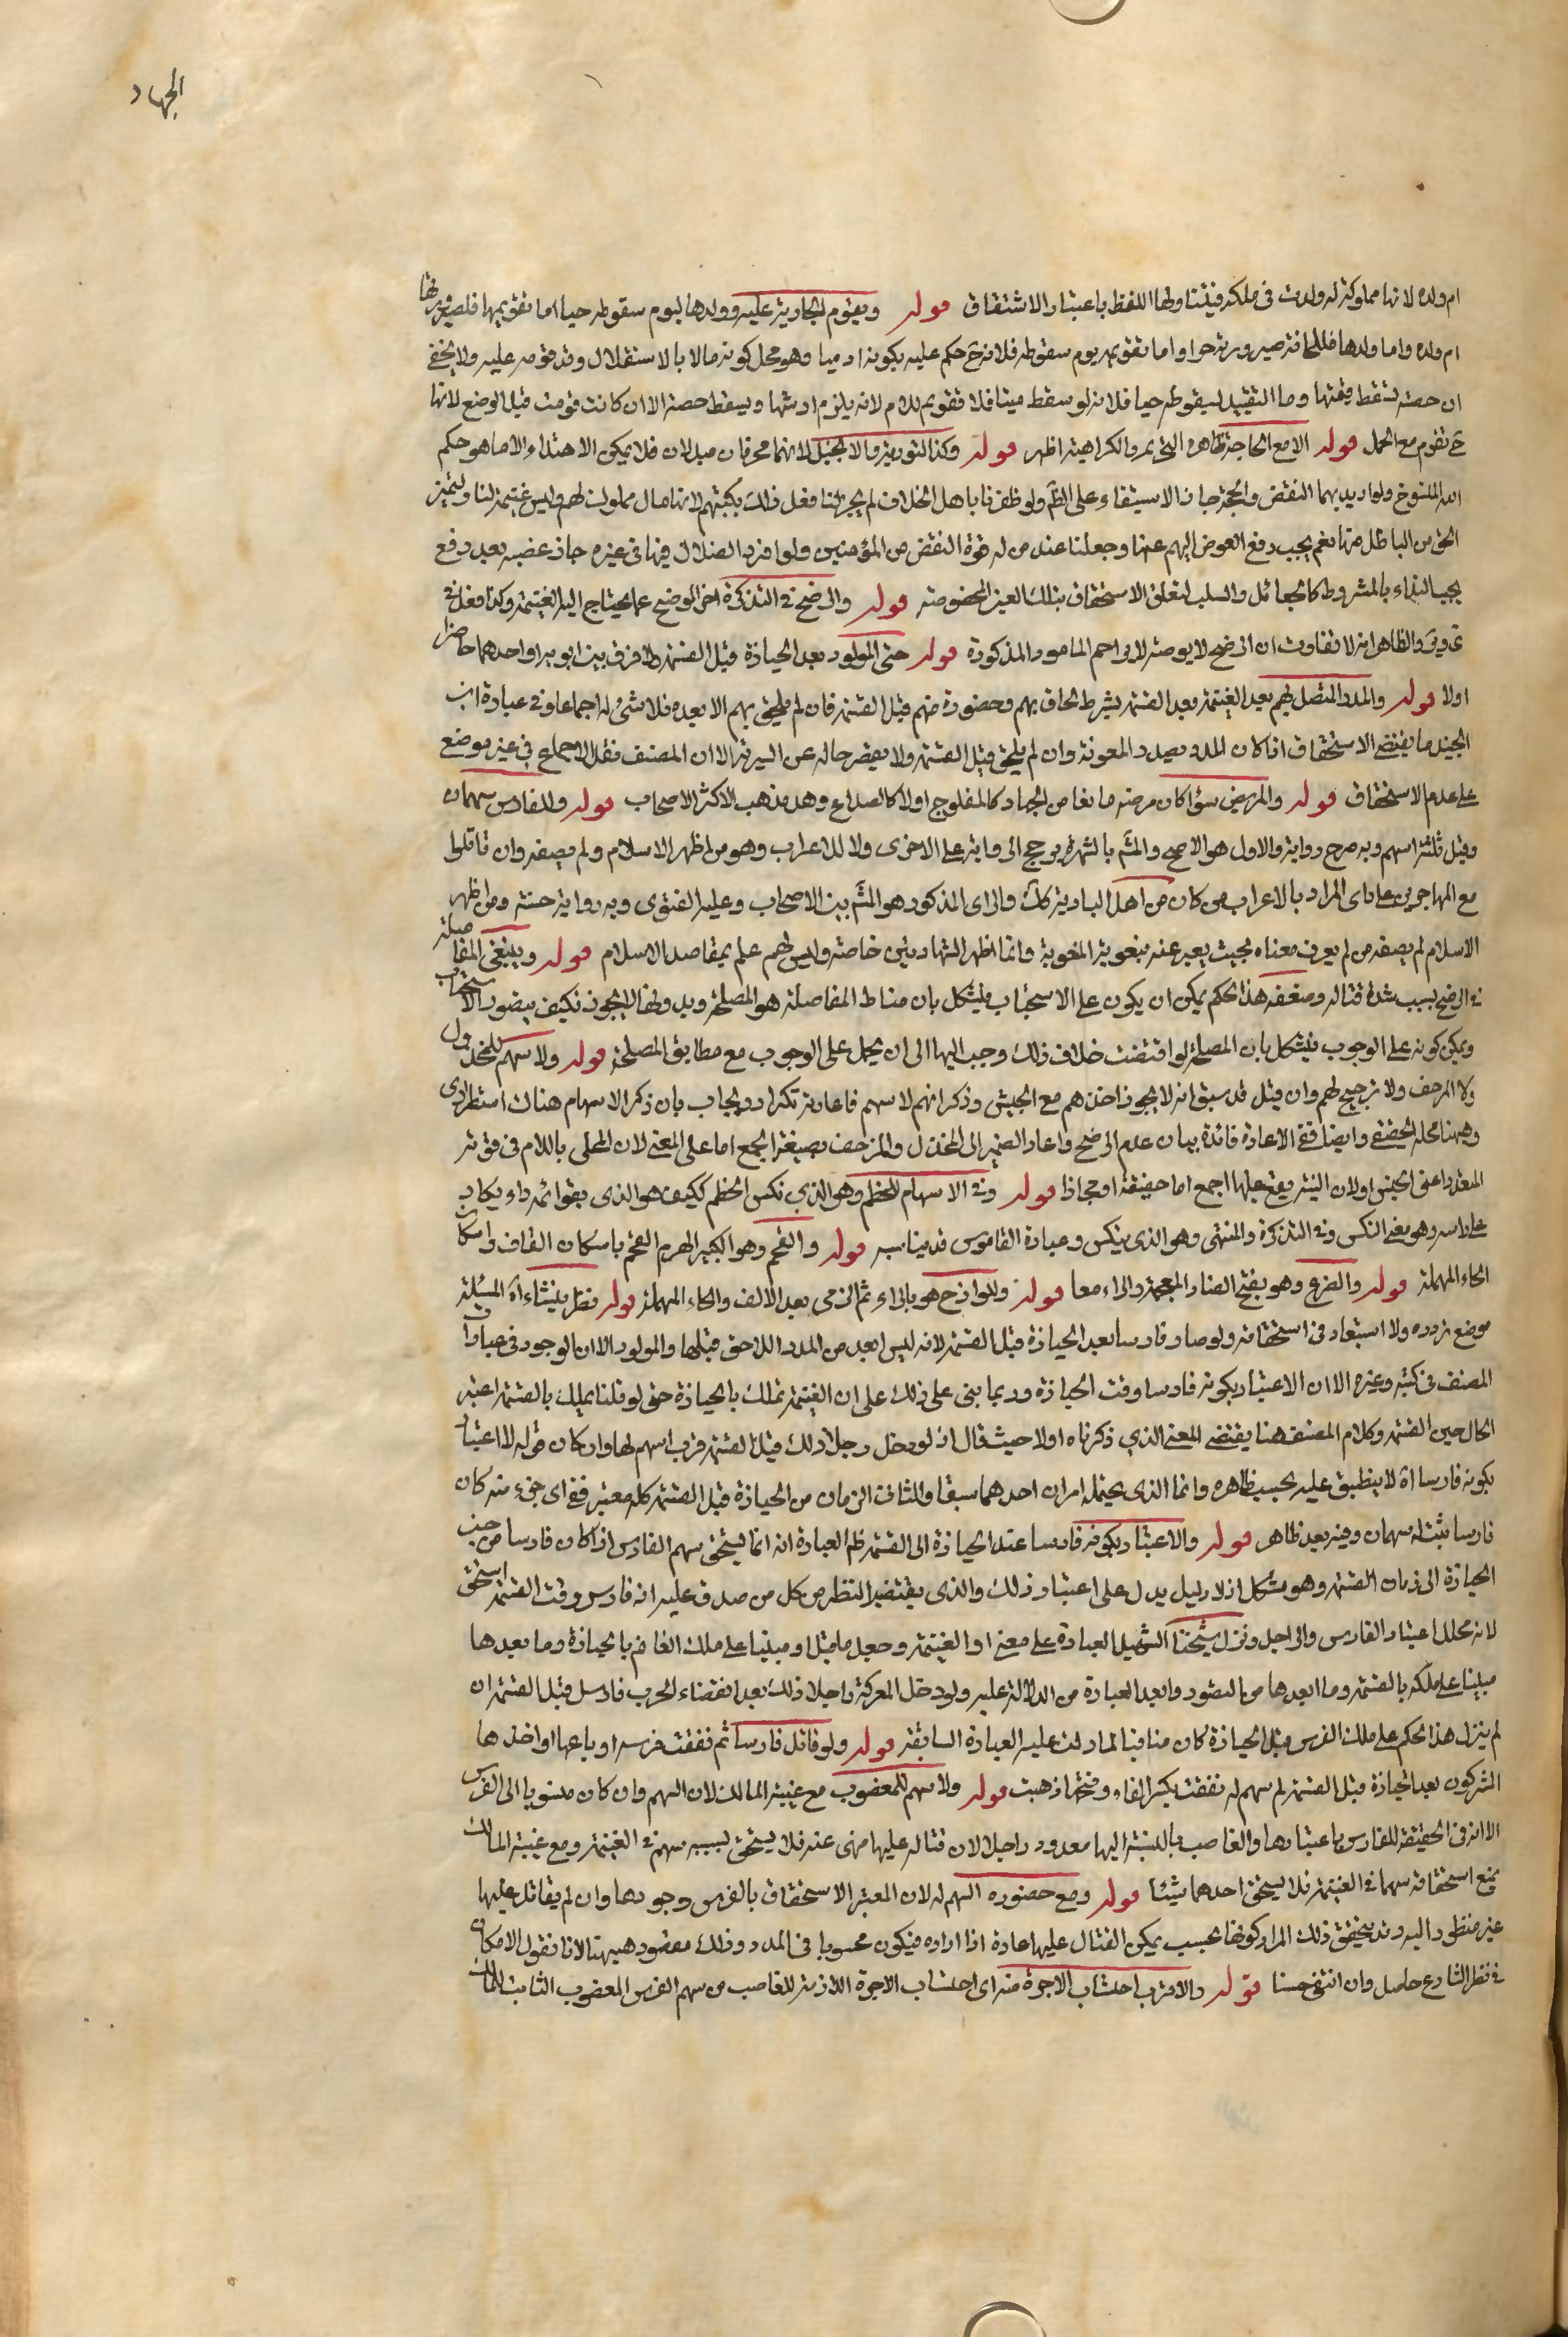 الجهاد
ام ولده لانها مملوكة له ولدت في ملكه فيتناولها اللفظ باعتبار الاشتقاق قوله ويقوم الجارية عليه وولدها ليوم سقوطه حيا اما تقويمها فلصيرورتها
ام ولده واما ولدها فللحاقه صيرورته حرا واما تقويمه يوم سقوطه فلانه ح حكم عليه بكونه ادميا وهو محل كونه مالا بالاستقلال وقد فوته عليه ولا يخفى
ان حصته تسقط قيمتها وما التقييد لسقوطه حيا فلانه لو سقط ميتا فلا تقويم للام لانه يلزم ارشها ويسقط حصته الا ان كانت قومت قبل الوضع لانها
ح تقوم مع الحمل قوله الا مع الحاجة ظاهره التحريم والكراهية اظهر قوله وكذا التورية والانجيل لانهما محرفان مبدلان فلا يمكن الاهتداء الا ما هو حكم
الله المنسوخ ولو اريد بهما النقض والحجة جاز الاستبقاء على الظم ولو ظفرنا باهل الخلاف لم يجز لنا فعل ذلك بكتبهم لانها مال مملوك لهم وليس غنيمة لنا وليتميز
الحق من الباطل منها نعم يجب دفع العوض اليهم عنها وجعلنا عند من له قوة النقض من المؤمنين ولو افرد الضلال فيها في غيره جاز غصبه بعد دفع
يجب البداء بالمشروط كالجعائل والسلب لتعلق الاستحقاق بتلك العين المخصوصة قوله والرضح في التذكرة اخر الوضيح عما يحتاج اليه الغنيمة وكذا فعل في
ى وق والظاهر انه لا تفاوت ان الرضح لا يوصل لارباحم المامور المذكورة قوله حتى المولود بعد الحيازة قبل القسمة ولا فرق بين ابويه او احدهما حاضرا
اولا قوله والمدد المتصل بهم بعد الغنيمة بعد القسمة بشرط لحاق بهم وحضوره منهم قبل القسمة فان لم يلحق بهم الا بعده فلا شئ له اجماعا وفي عبارة ابن
الجنيد ما يقتضي الاستحقاق اذا كان المدد بصدد المعونة وان لم يلحق قبل القسمة ولا يقصر حاله عن السرية الا ان المصنف نقل الاجماع في غير موضع
على عدم الاستحقاق قوله والمريض سواء كان مرضه مانعا من الجهاد كالمفلوج اولا كالصداع وهو مذهب الاكثر الاصحاب قوله وللفارس سهمان
وقيل ثلثة اسهم وبه صرح رواية والاول هو الاصح والمشم بالشهرة يرجح الرواية على الاخرى ولا للاعراب وهو من اظهر الاسلام ولم يصفه وان قاتلوا
مع المهاجرين على راى المراد بالاعراب من كان من اهل البادية كك والراى المذكور هو المشم بين الاصحاب وعليه الفتوى وبه رواية حسنة ومن اظهر
الاسلام لم يصفه من لم يعرف معناه بحيث يعبر عنه بنعوته المغوية وانما اظهر الشهادتين خاصة وليس لهم علم بمقاصد الاسلام قوله وينبغى المفاضلة
في الرضح بسبب شدة قتاله وضعفه هذا الحكم يمكن ان يكون على الاستحباب فيشكل بان مناط المفاضلة هو المصلحة وبدونها لا يجوز فكيف يتصور الاستحباب
ويمكن كونه على الوجوب فيشكل بان المصلحة لو اقتضت خلاف ذلك وجب اليها الى ان يحمل على الوجوب مع مطابق المصلحة قوله ولا سهم للمخذول
ولا المرجف ولا ترجيح لهم وان قيل قد سبق انه لا يجوز اخذهم مع الجيش وذكر انهم لا سهم فاعادته تكرار ويجاب بان ذكر الاسهام هناك استطرادى
وههنا محله الحقيقى وايضا ففى الاعادة فائدة بيان عدم الرضح واعاد الضمير الى المخذل والمرجف بصيغة الجمع اما على المعنى لان المحلى باللام في قوته
المتعدد اعنى الجنس اولان التثنية يقع عليها اجمع اما حقيقة او مجازا قوله وفي الاسهام للحطم وهو الذي نكس الحطم ككيف هو الذى بقوائمه داء يكاد
على راسه وهو معنى النكس وفي التذكرة والمنتهى وهو الذى ينكس وعبارة القاموس قد يناسبه قوله والقحم وهو الكبير الهرم القحم باسكان القاف واسكان
الحاء المهملة قوله والضرع وهو بفتح الضاد المعجمة والراء معا قوله وللرازح هو بالراء ثم الزمى بعد الالف والحاء المهملة قوله نظر ينشاء اه المسئلة
موضع تردده ولا استبعاد في استحقاقه ولو صار فارسا بعد الحيازة قبل القسمة لانه ليس ابعد من المدد اللاحق قبلها والمولود الا ان الموجود في عبارات
المصنف في كتبه وغيره الا ان الاعتبار بكونه فارسا وقت الحيازة وربما بنى على ذلك على ان الغنيمة تملك بالحيازة حتى لو قلنا يملك بالقسمة اعتبر
الحال حين القسمة وكلام المصنف هنا يقتضى المعنى الذي ذكرناه اولا حيث قال انه لو دخل رجلا ذلك قبل القسمة فرب اسهم لها وان كان قوله لا اعتبار
بكونه فارسا اه لا ينطبق عليه بحسب ظاهره وانما الذى يحتمله امران احدهما سبقا والثانى الزمان من الحيازة قبل القسمة كله معتبر ففى اى جزء منه كان
فارسا يثبت له سهمان وفيه بعد ظاهر قوله والاعتبار بكونه فارسا عند الحيازة الى القسمة ظم العبارة انه انما يستحق سهم الفارس اذا كان فارسا من حين
الحيازة الى زمان القسمة وهو مشكل اذ لا دليل يدل على اعتبار ذلك والذى يقتضيه النظر من كل من صدق عليه انه فارس وقت القسمة استحق
لانه محلل اعتبار الفارس والراجل ونزل شيخنا الشهيد العبارة على معنى او الغنيمة وجعل ما قبل او مبنيا على ملك الغانم بالحيازة وما بعدها
مبنيا على ملكه بالقسمة وما ابعدها من التصور وابعد العبارة من الدلالة عليه ولو دخل المعركة راجلا ذلك بعد انقضاء الحرب فارس قبل القسمة ان
لم ينزل هذا الحكم على ملك الفرس قبل الحيازة كان منافيا لما دلت عليه العبارة السابقة قوله ولو قاتل فارسا ثم نفقت فرسه او باعها او اخذها
المشركون بعد الحيازة قبل القسمة لم سهم له نفقت بكسر الفاء وفتحها ذهبت قوله ولا سهم للمغصوب مع غيبة المالك لان السهم وان كان منسوبا الى الفرس
الا انه في الحقيقة للفارس باعتبارها والغاصب بالنسبة اليها معدود راجلا لان قتاله عليها منهى عنه فلا يستحق بسببه سهم في الغنيمة ومع غيبة المالك
يمنع استحقاقه سهما في الغنيمة فلا يستحق احدهما شيئا قوله ومع حضوره السهم له لان المعتبر الاستحقاق بالفرس وجودها وان لم يقاتل عليها
غير منظور اليه وقد يتحقق ذلك المراد كونها بحسب يمكن القتال عليها عادة اذا اراده فيكون محسوبا في المدد وذلك مفقود هيهنا لانا نقول الامكان
في نظر الشارع حاصل وان انتفى حسنا قوله والاقرب احتساب الاجرة منه اى احتساب الاجرة اللازمة للغاصب من سهم الفرس المغصوب الثابت للمالك